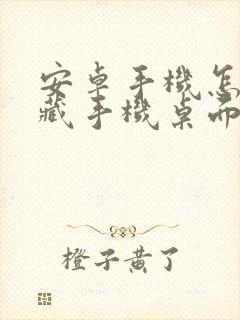 安卓手機怎
藏手機桌面
橙子黄了